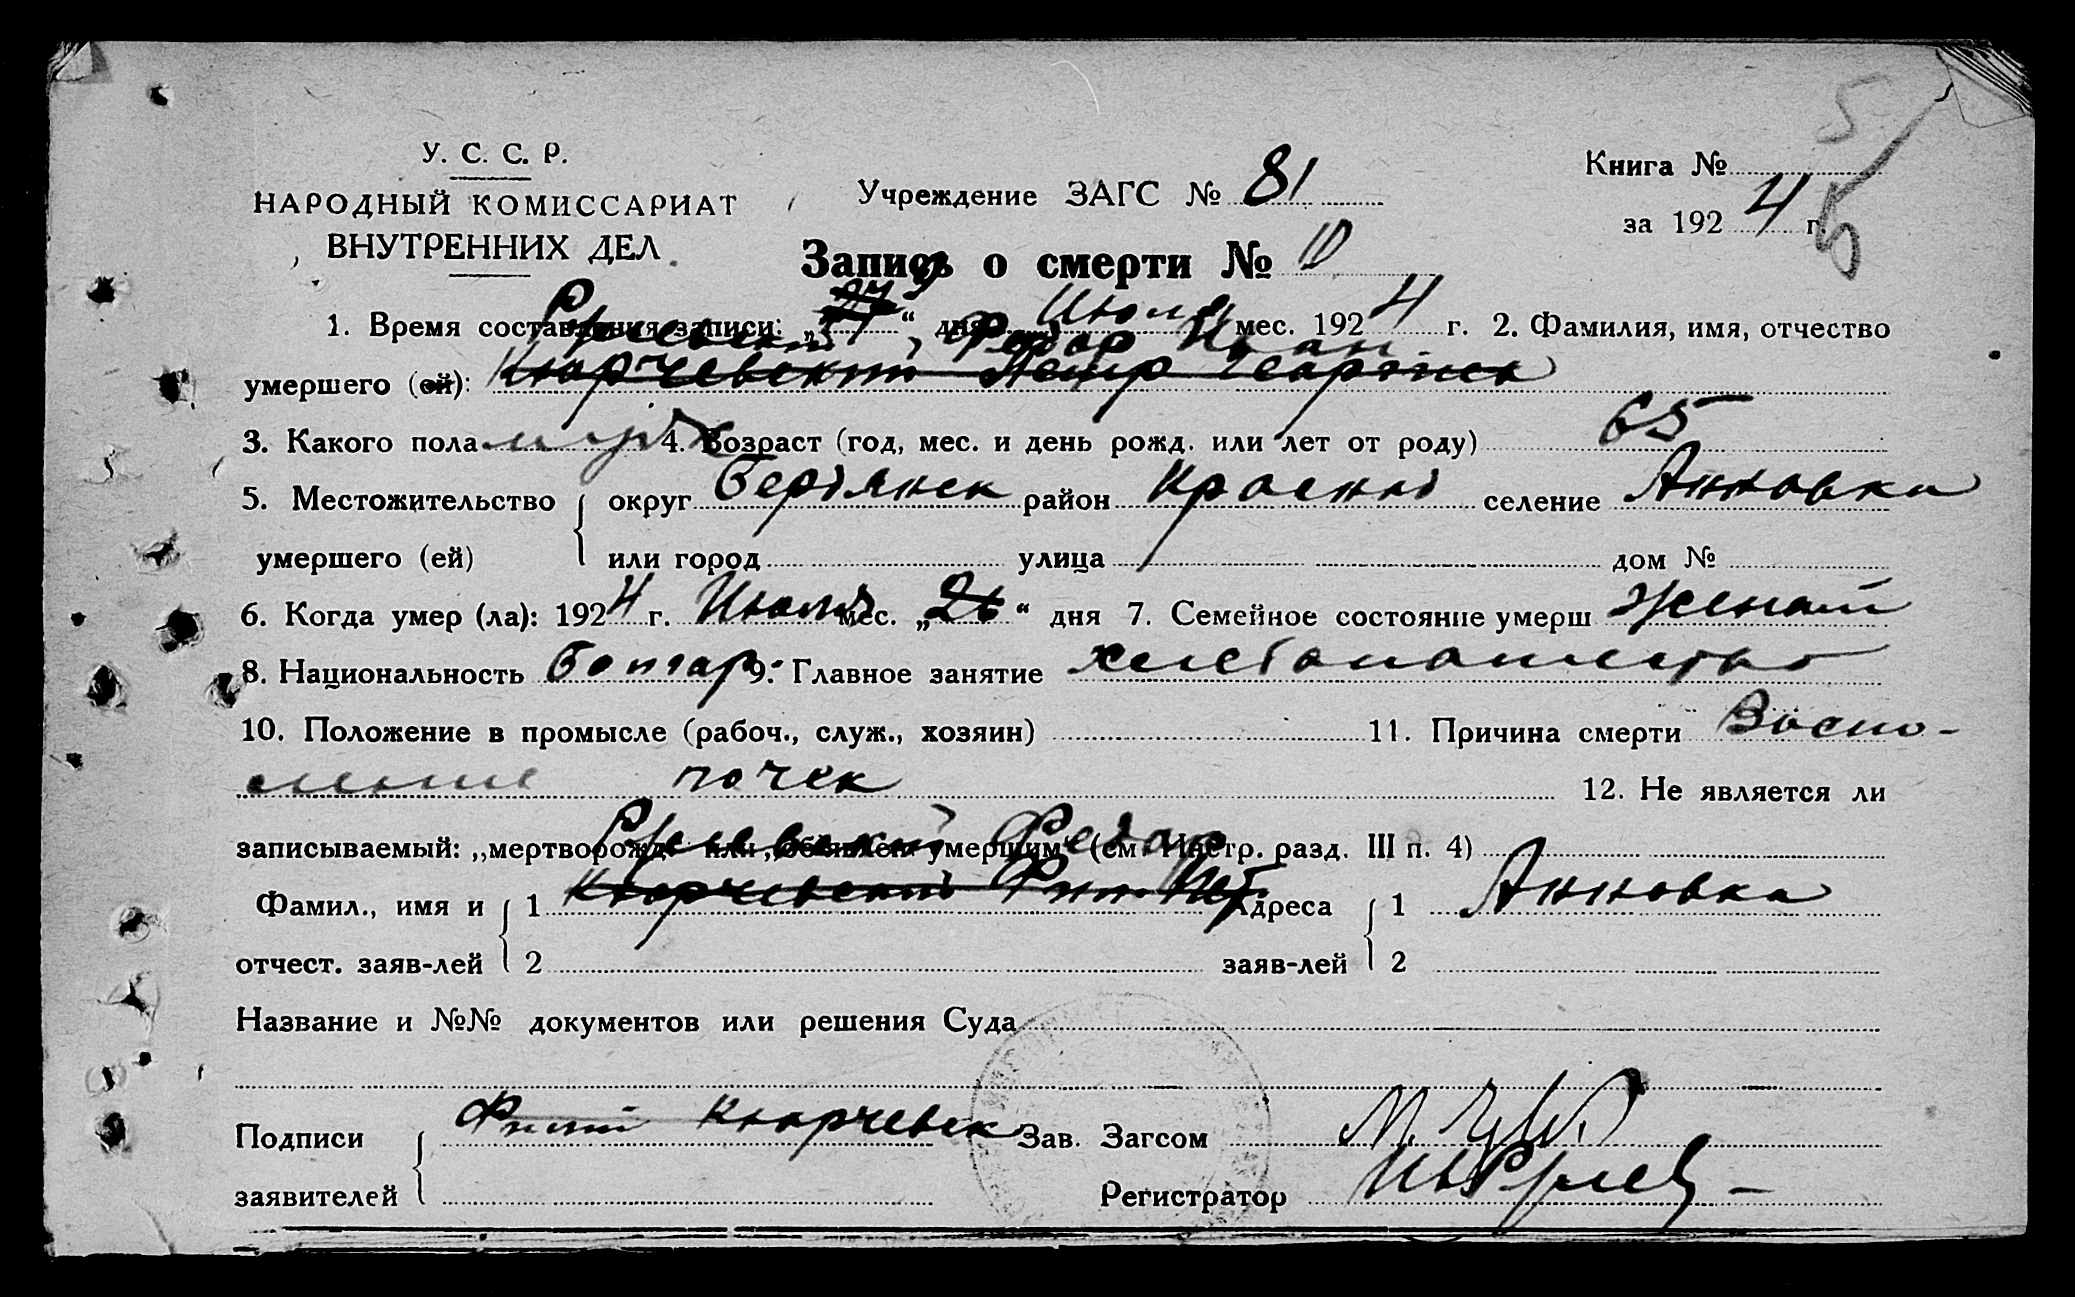 У. С. С. Р.
НАРОДНЫЙ КОМИССАРИАТ
ВНУТРЕННИХ ДЕЛ
Учреждение ЗАГС № 81
Книга №
за 1924 г.
5
Запись о смерти № 10
1. Время составления записи: „ “ дня Июля мес. 1924 г. 2. Фамилия, имя, отчество
Федор Иван
умершего (ей): Кюрчевский Петр
3. Какого пола муж 4. Возраст (год, мес. и день рожд. или лет от роду) 65
5. Местожительство умершего (ей) { округ Бердянск район Красный селение Анновка
или город улица дом №
6. Когда умер (ла): 1924 г. Июля мес. „26“ дня 7. Семейное состояние умерш Женат
8. Национальность Болгар 9. Главное занятие
10. Положение в промысле (рабоч., служ., хозяин) 11. Причина смерти Воспо-
ление почек 12. Не является ли
записываемый: „мертворожд.“ или „объявлен умершим“ (см. Инстр. разд. III п. 4)
Федор
Фамил., имя и отчест. заяв-лей { 1 Кюрчевский Фил. Адреса заяв-лей { 1 Анновка
2 2
Название и №№ документов или решения Суда
Подписи заявителей { Кюрчевск Зав. Загсом
Регистратор